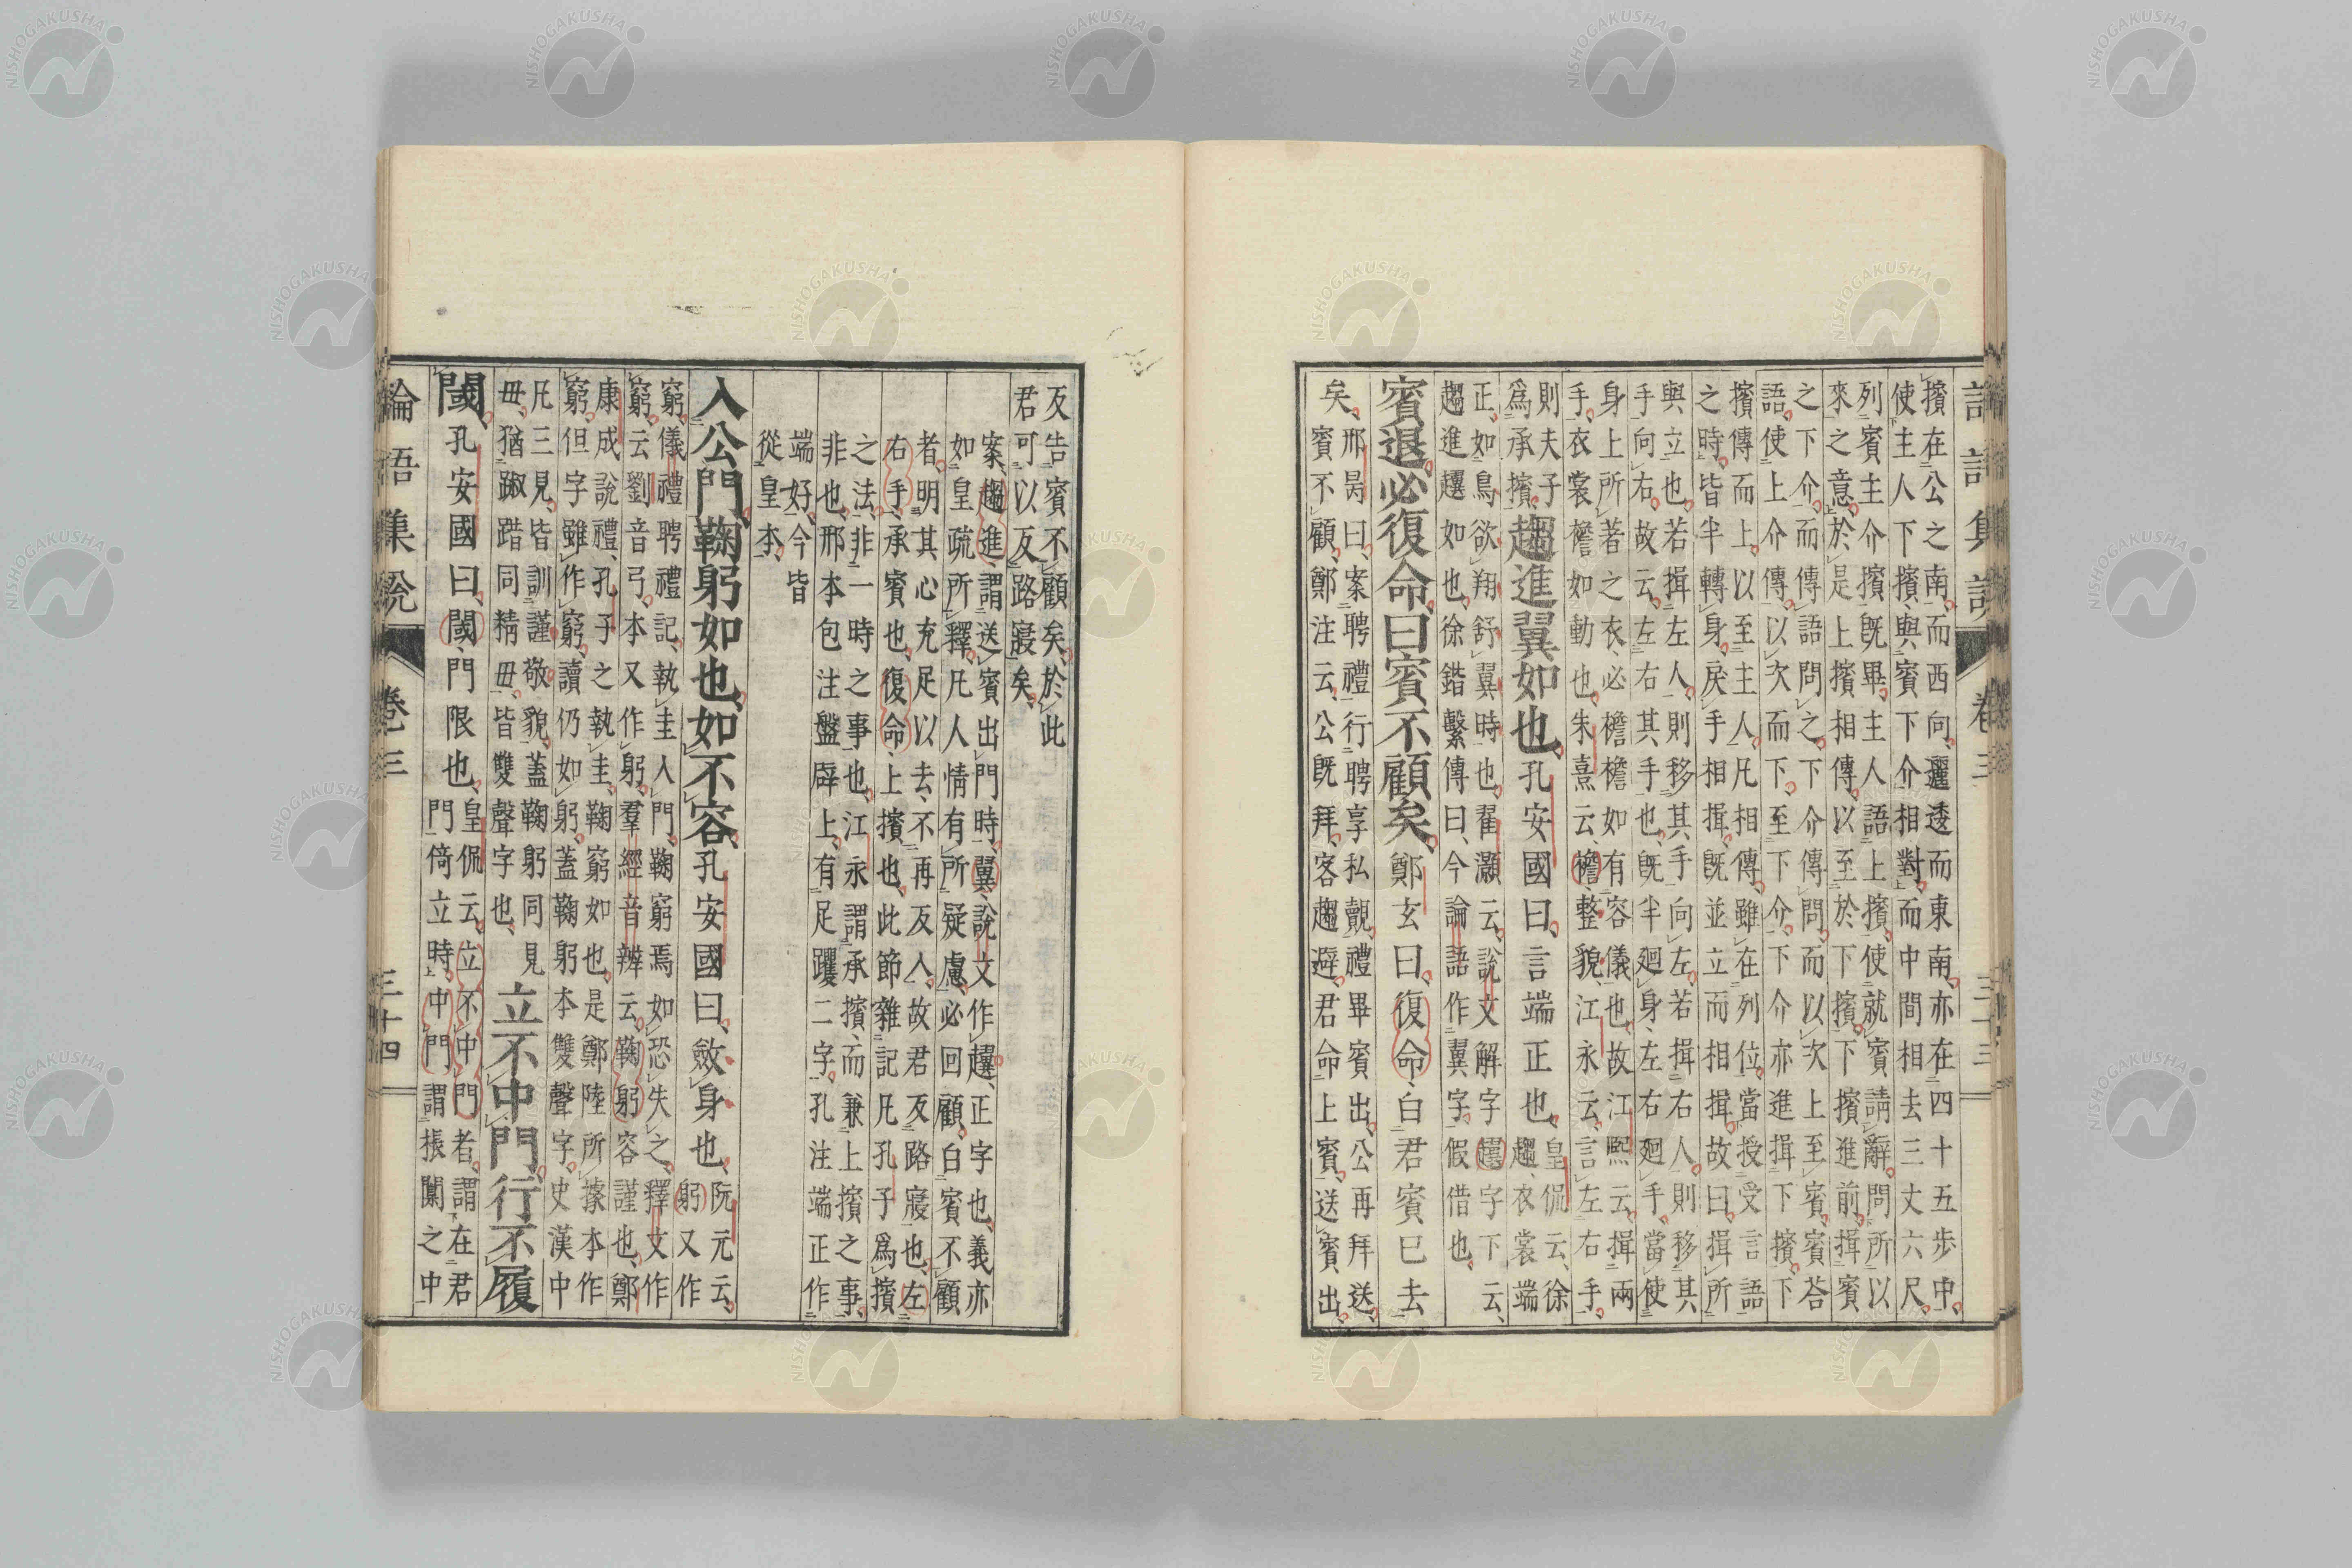 擯在公之南、而西向、邐迤而東南、亦在四十五步中、
使主人下擯、與賓下介相對、而中間相去三丈六尺、
列賓主介擯既畢、主人語上擯、使就賓請辭、問所以
來之意、於是上擯相傳、以至於下擯、下擯進前、揖賓
之下介、而傳語問之、下介傳問、而以次上至賓、賓荅
語、使上介傳、以次而下、至下介、下介亦進揖下擯、下
擯傳而上、以至主人、凡相傳、雖在列位、當授受言語
之時、皆半轉身、戾手相揖、既並立而相揖、故曰、揖所
與立也、若揖左人、則移其手向左、若揖右人、則移其
手向右、故云、左右其手也、既半廻身、左右廻手、當使
身上所著之衣、必襜襜如有容儀也、故江熙云、揖兩
手、衣裳襜如動也、朱熹云、襜、整貌、江永云、言左右手、
則夫子
爲承擯、
趨進翼如也、
孔安國曰、言端正也、
皇侃云、徐
趨、衣裳端
正、如鳥欲翔舒翼時也、翟灝云、說文解字趩字下云、
趨進趩如也、徐鍇繫傳曰、今論語作翼字、假借也、
賓退必復命曰賓不顧矣、
鄭玄曰、復命、白君賓已去
矣、
邢昺曰、案聘禮行聘享私覿、禮畢賓出、公再拜送、
賓不顧、鄭注云、公既拜、客趨避、君命上賓、送賓出、
論語集說
卷三
反告賓不顧矣、於此
君可以反路寢矣、
案、趨進、謂送賓出門時、翼、說文作趩、正字也、義亦
如皇疏所釋、凡人情有所疑慮、必回顧、白賓不顧
者、明其心充足以去、不再反入、故君反路寢也、左
右手、承賓也、復命、上擯也、此節雜記凡孔子爲擯
之法、非一時之事也、江永謂承擯、而兼上擯之事、
非也、邢本包注盤辟上、有足躩二字、孔注端正作
端好、今皆
從皇本、
入公門、鞠躬如也、如不容、
孔安國曰、斂身也、
阮元云、
躬又作
窮、儀禮聘禮記、執圭入門、鞠窮焉如恐失之、釋文作
窮、云劉音弓、本又作躬、羣經音辨云、鞠躬容謹也、鄭
康成說禮、孔子之執圭、鞠窮如也、是鄭陸所據本作
窮、但字雖作窮、讀仍如躬、蓋鞠躬本雙聲字、史漢中
凡三見、皆訓謹敬貌、蓋鞠躬同見
毋、猶踧踖同精毋、皆雙聲字也、
立不中門、行不履
閾、
孔安國曰、閾、門限也、
皇侃云、立不中門者、謂在君
門倚立時、中門謂棖闑之中
論語集說
卷三
三十四